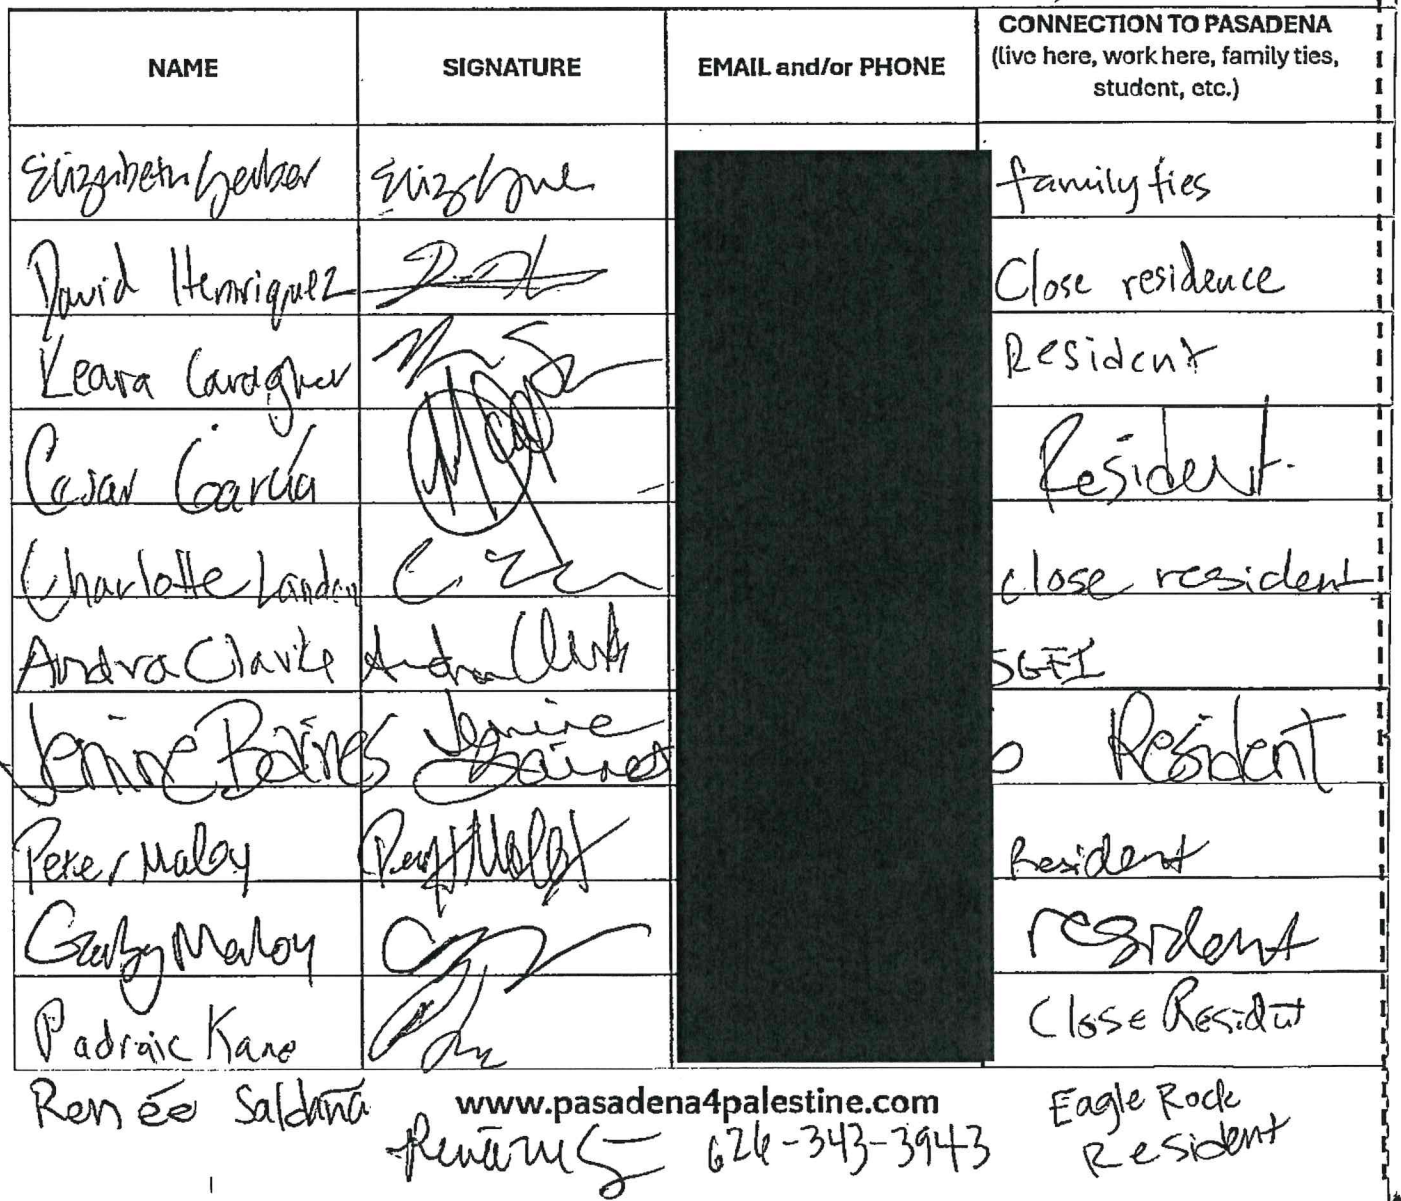 NAME SIGNATURE EMAIL and/or PHONE CONNECTION TO PASADENA
(live here, work here, family ties,
student, etc.)
Elizabeth Gerber family ties
David Henriquez Close residence
Keara Caragher Resident
Cesar García Resident.
Charlotte Landon close resident
Andra Clarke Andra Clarke SGFI
Jenine Baines Jenine Baines Resident
Peter Maloy Resident
Gaby Maloy resident
Padraic Kane Close Resident
Renée Saldaña www.pasadena4palestine.com Eagle Rock
626-343-3943 Resident